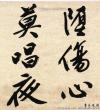 傷心
莫唱夜